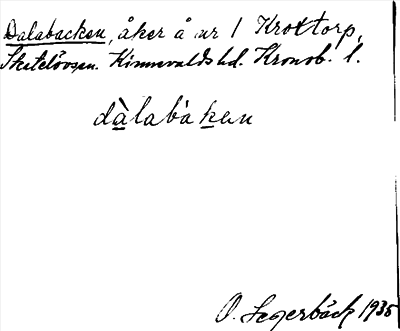 Dalabacken, åker å nr 1 Kroxtorp,
Skatelövs sn. Kinnevalds hd. Kronob. l.
dàlabàken
O. Segerbäck 1935